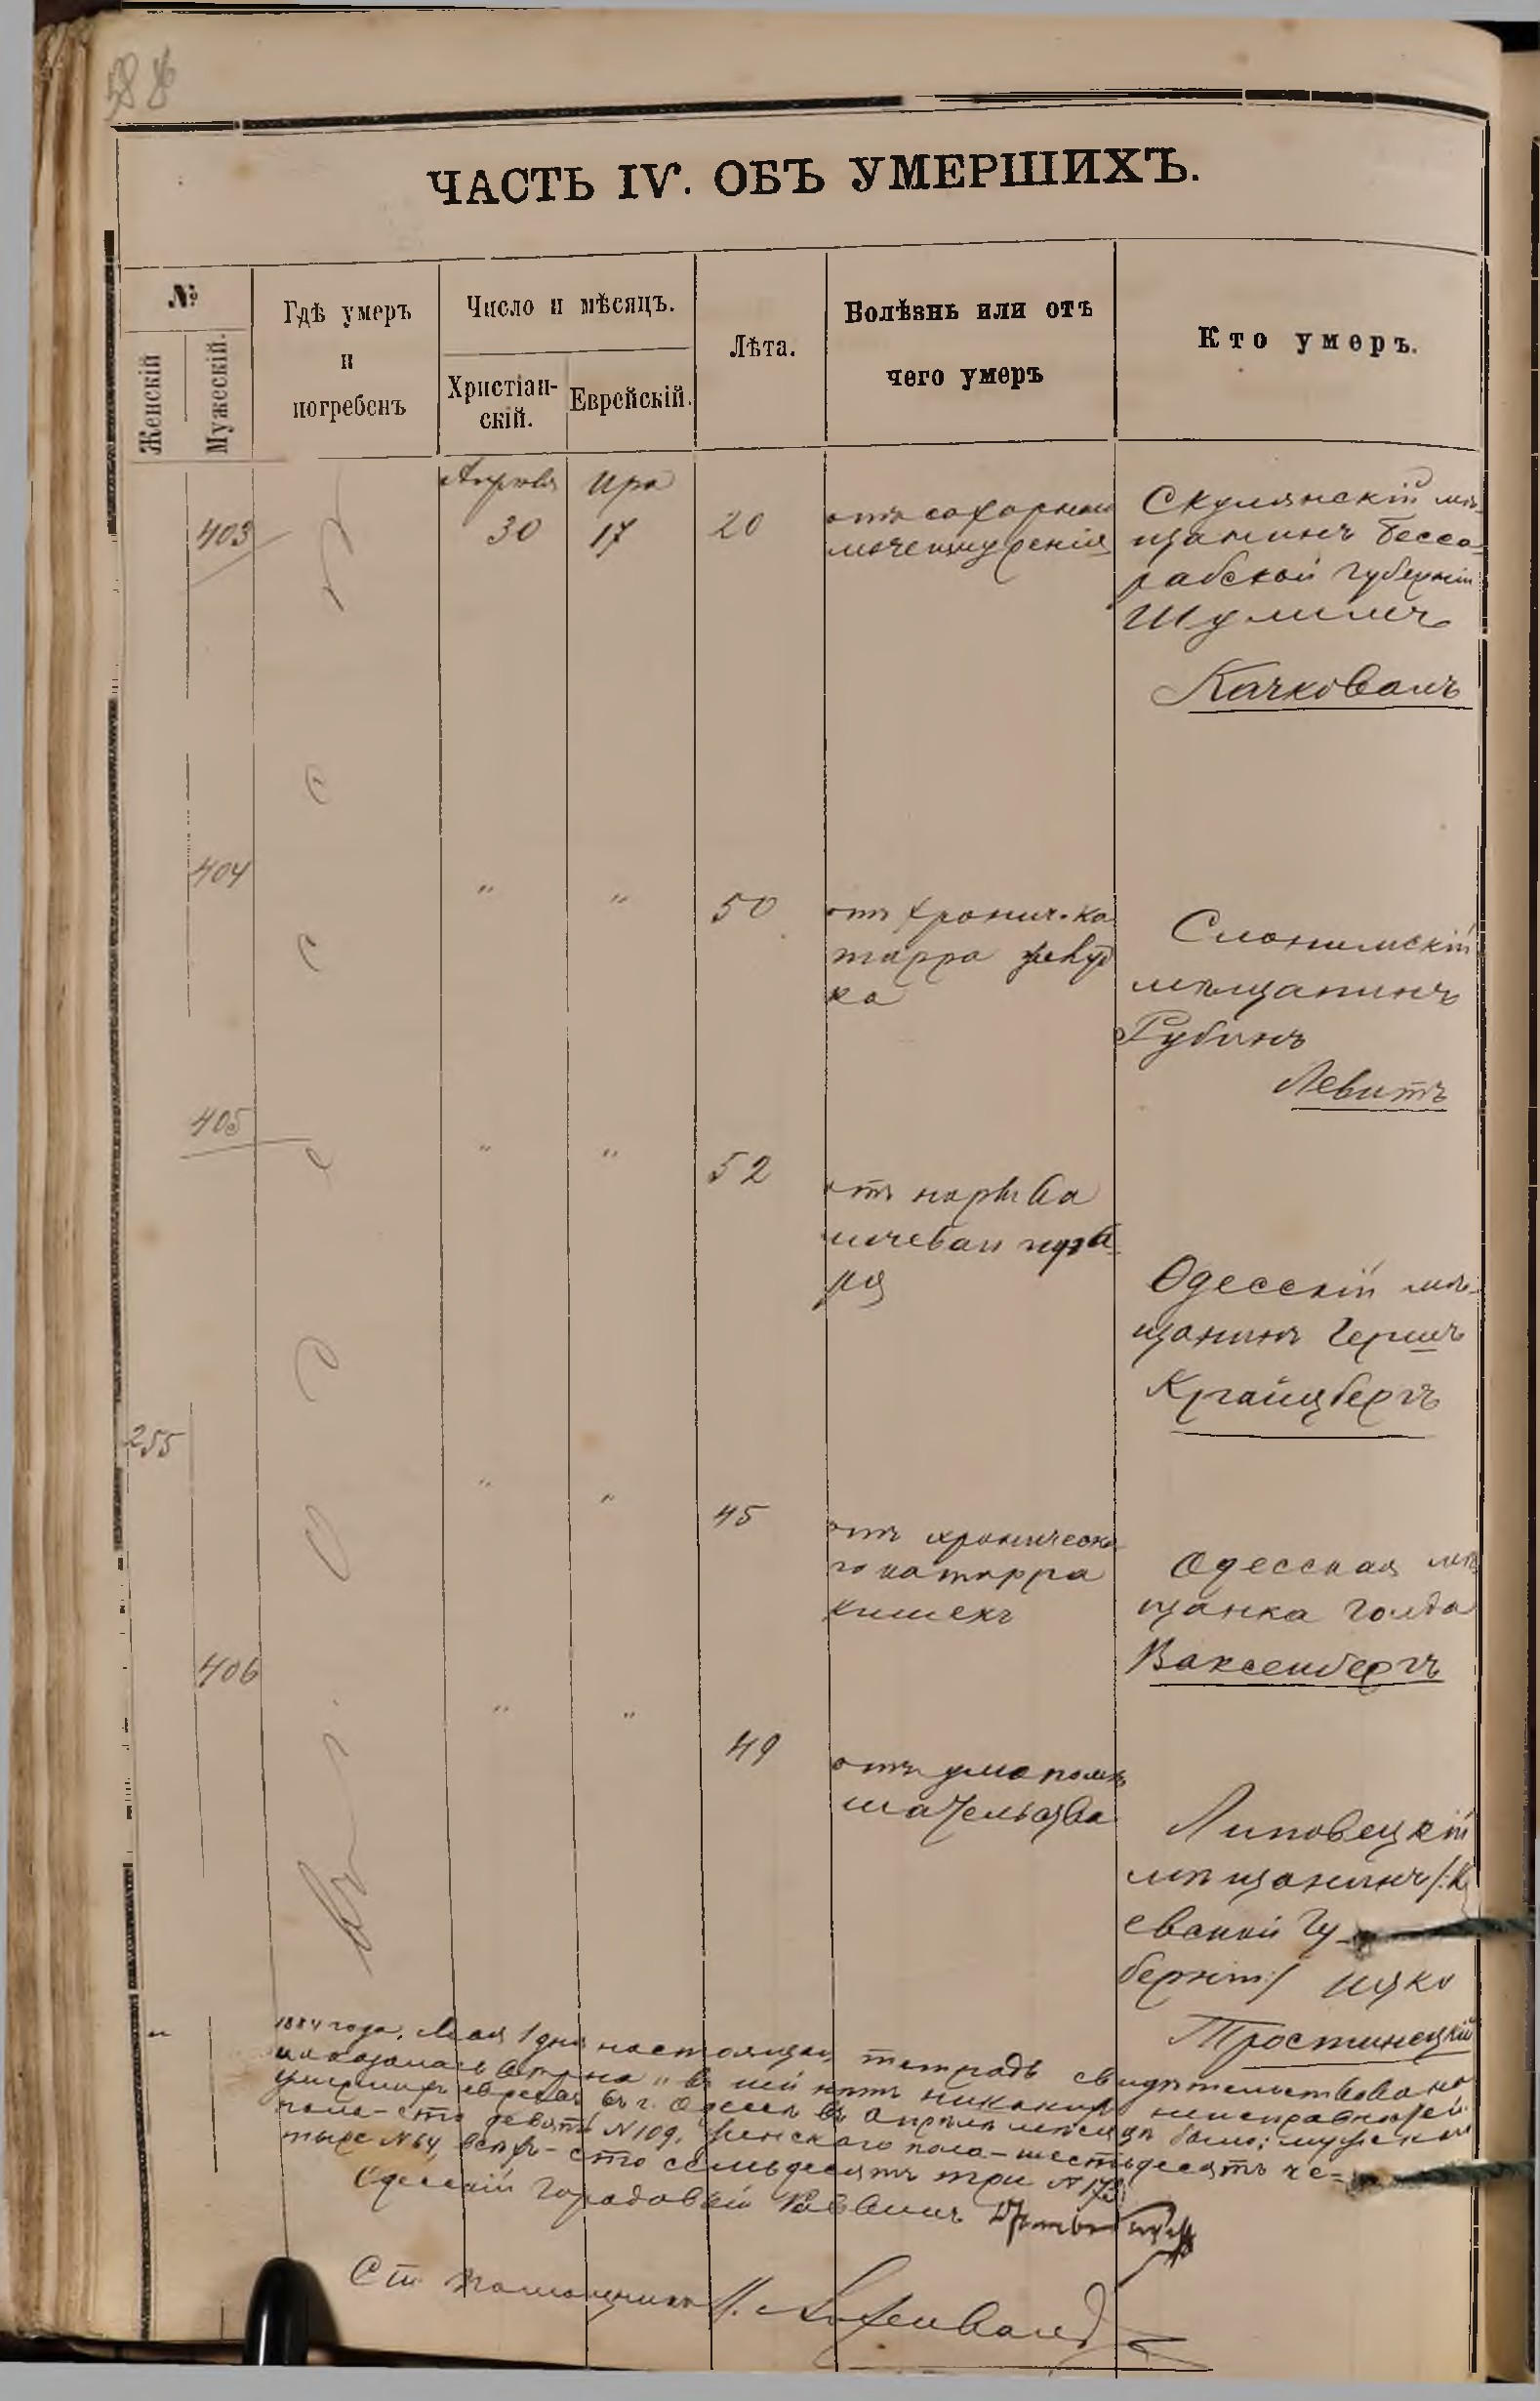 ЧАСТЬ IV. ОБЪ УМЕРШИХЪ.
№
Женскій
Мужескій.
Гдѣ умеръ
и
погребенъ
Число и мѣсяцъ.
Христіан-
скій.
Еврейскій.
Лѣта.
Болѣзнь или отъ
чего умеръ
Кто умеръ.
403
Апрѣля
30
Ира
17
20
отъ сахарнаго
мочеизнуренія
Скулянскій мѣ-
щанинъ Бесса-
рабской губерніи
Шулимъ
Качкованъ
404
" "
50
отъ хронич. ка
тарра желуд
ка
Слонимскій
мѣщанинъ
Рубинъ
Левитъ
405
" "
52
отъ нарыва
мочеваго пузы
ря
Одесскій мѣ-
щанинъ Гершъ
Крайцбергъ
255
" "
45
отъ хроническа
го катарра
кишекъ
Одесская мѣ
щанка Голда
Ваксенбергъ
406
" "
49
отъ умопомѣ
шательства
Липовецкій
мѣщанинъ /:Кі
евской Гу-
берніи:/ Ицко
Тростинецкій
1884 года, Мая 1 дня настоящая тетрадь свидѣтельствована
и оказалась вѣрна " въ ней нѣтъ никакихъ неисправностей.
умершихъ евреевъ въ г. Одессѣ въ Апрѣлѣ мѣсяцѣ было: мужскаго
пола - сто девять №109, женскаго пола - шестьдесятъ че-
тыре №64, всѣхъ - сто семьдесятъ три №173
Одесскій Городовой Раввинъ
Ст. помощникъ